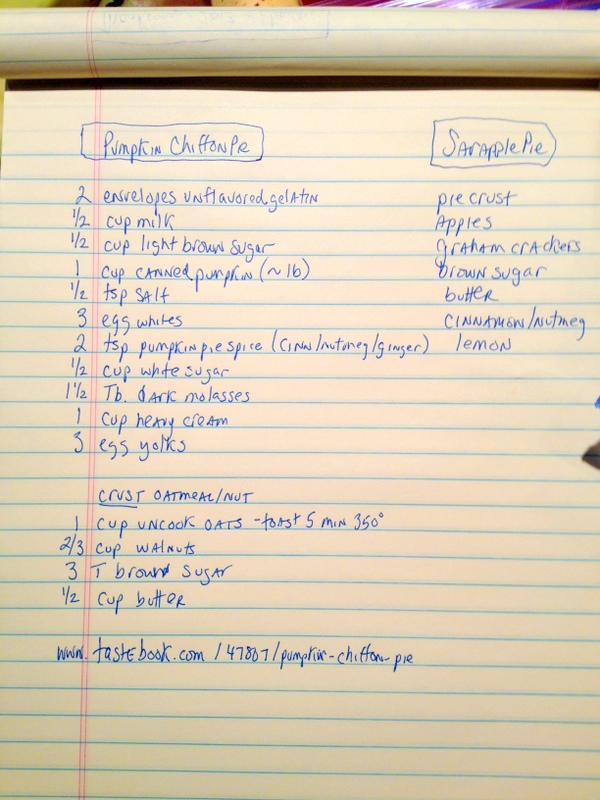 Pumpkin Chiffon Pie
2 envelopes unflavored gelatin
1/2 cup milk
1/2 cup light brown sugar
1 cup canned pumpkin (~1b)
1/2 tsp salt
3 egg whites
2 tsp pumpkin pie spice (cinn/nutmeg/ginger)
1/2 cup white sugar
1 1/2 Tb. dark molasses
1 cup heavy cream
3 egg yolks
CRUST OATMEAL/NUT
1 cup uncook oats - toast 5 min 350°
2/3 cup walnuts
3 T brown sugar
1/2 cup butter
www.tastebook.com/47807/pumpkin-chiffon-pie
Sarapple Pie
pie crust
Apples
graham crackers
brown sugar
butter
cinnamon/nutmeg
lemon